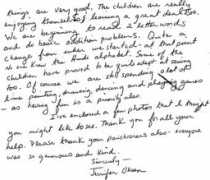 things are very good. The children are really
enjoying themselves learning a great deal too.
We are beginning to read 2 letter words
and do basic addition problems. Quite a
change from when we started - at that point
no one knew the whole alphabet. Some of the
children have proved to be quite adept at sewing
too. Of course we are still spending a lot of
time painting, drawing, dancing and playing games
- as having fun is a priority also.
I've enclosed a few photos that I thought
you might like to see. Thank you for all your
help. Please thank your parishioners also. Everyone
was so generous and kind.
Sincerely -
Jennifer Olson